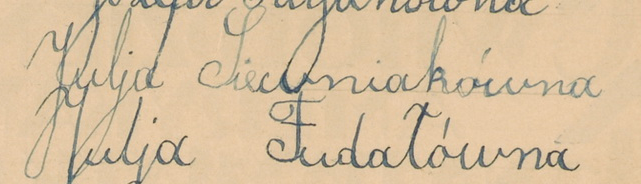 Julja Siewniakówna
Julja Fudatówna